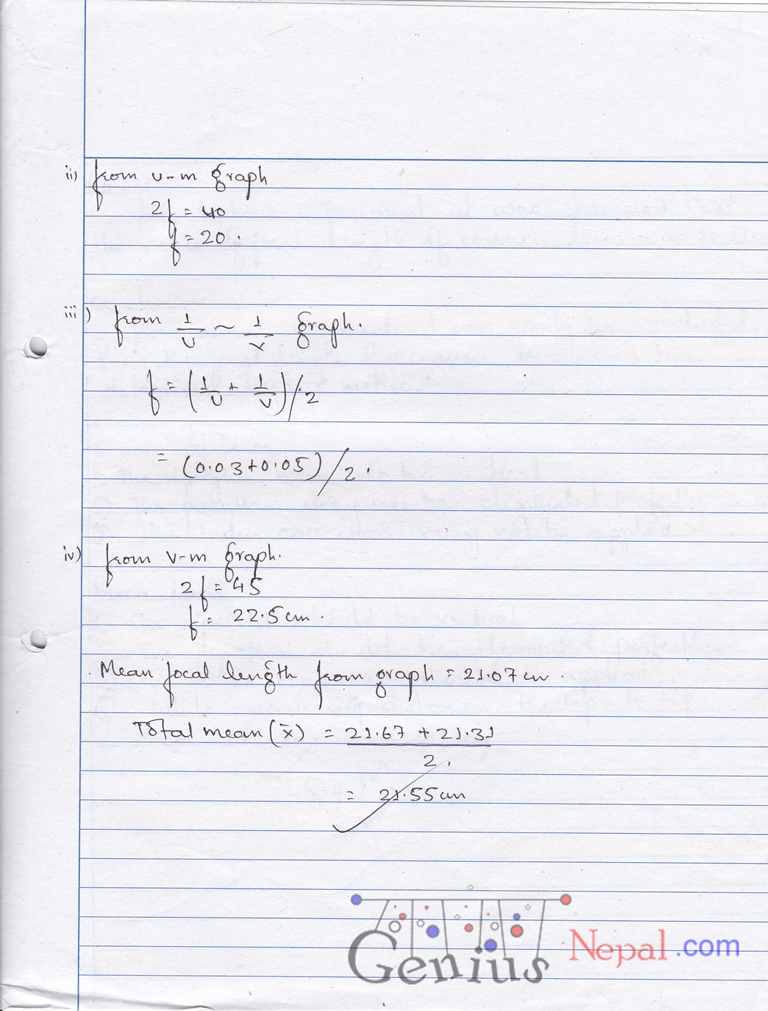 ii) from u-m graph
2f = 40
f = 20.
iii) from 1/u ~ 1/v graph.
f = (1/u + 1/v)/2
= (0.03+0.05)/2.
iv) from v-m graph.
2f = 45
f = 22.5cm.
Mean focal length from graph = 21.07 cm.
Total mean (x̄) = 21.67 + 21.31
2.
= 21.55cm
Genius Nepal.com